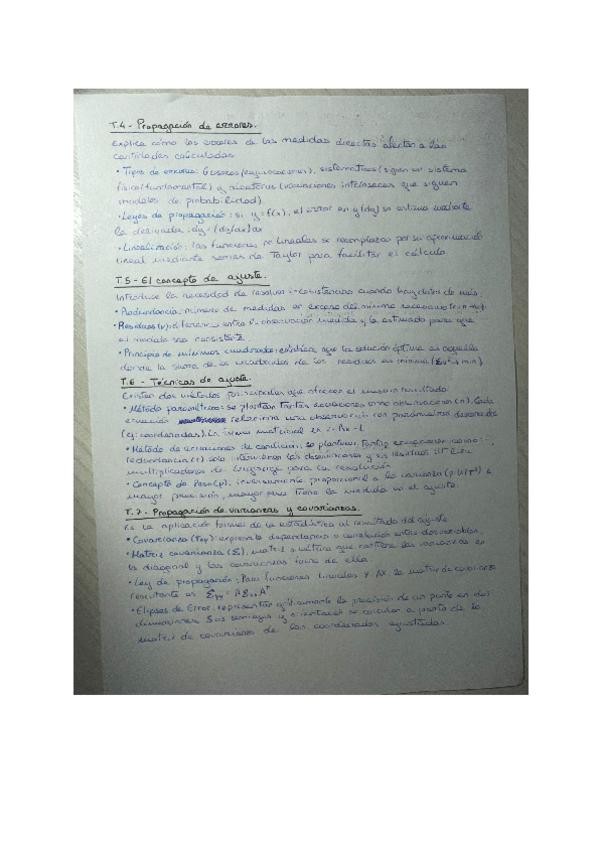 T.4 - Propagación de errores.
Explica cómo los errores de las medidas directas afectan a las
cantidades calculadas
• Tipos de errores: Groseros (equivocaciones), sistemáticos (siguen un sistema
físico/fundamental) y aleatorios (variaciones que siguen
modelos de probabilidad)
• Leyes de propagación: si y=f(x), el error en y (dy) se estima mediante
la derivada: dy = (dy/dx) dx
• Linealización: las funciones no lineales se reemplazan por su aproximación
lineal mediante series de Taylor para facilitar el cálculo
T.5 - El concepto de ajuste.
Introduce la necesidad de resolver inconsistencias cuando hay datos de más.
• Redundancia: número de medidas en exceso del mínimo necesario
• Residuos (v): diferencia entre la observación medida y la estimada para que
el modelo sea consistente
• Principio de mínimos cuadrados: establece que la solución óptima es aquella
donde la suma de los cuadrados de los residuos es mínima (Σv² → min).
T.6 - Técnicas de ajuste.
Existen dos métodos principales que ofrecen el mismo resultado
• Método paramétrico: se plantean tantas ecuaciones como observaciones (n). Cada
ecuación relaciona una observación con parámetros desconocidos
(ej: coordenadas). En forma matricial es
• Método de ecuaciones de condición: se plantean tantas ecuaciones como
redundancia (r). Solo intervienen las observaciones y sus residuos. Utiliza
multiplicadores de Lagrange para la resolución
• Concepto de Peso (p), inversamente proporcional a la varianza. A
mayor precisión, mayor peso tiene la medida en el ajuste.
T.7 - Propagación de varianzas y covarianzas.
Es la aplicación formal de la estadística al resultado del ajuste
• Covarianza: expresa la dependencia o correlación entre dos variables.
• Matriz covarianza (Σ), matriz simétrica que contiene las varianzas en
la diagonal y las covarianzas fuera de ella.
• Ley de propagación: Para funciones lineales Y=AX la matriz de covarianza
resultante es Σyy = AΣxxAᵀ
• Elipses de Error: representan gráficamente la precisión de un punto en dos
dimensiones. Sus semiejes y orientación se calculan a partir de la
matriz de covarianza de las coordenadas ajustadas